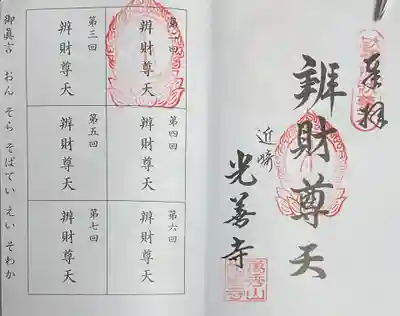 奉拝
辨財尊天
近崎
光善寺
萬秀山
第二回
辨財尊天
第四回
辨財尊天
第六回
辨財尊天
第三回
辨財尊天
第五回
辨財尊天
第七回
辨財尊天
御眞言 おん そら そばてい えい そわか